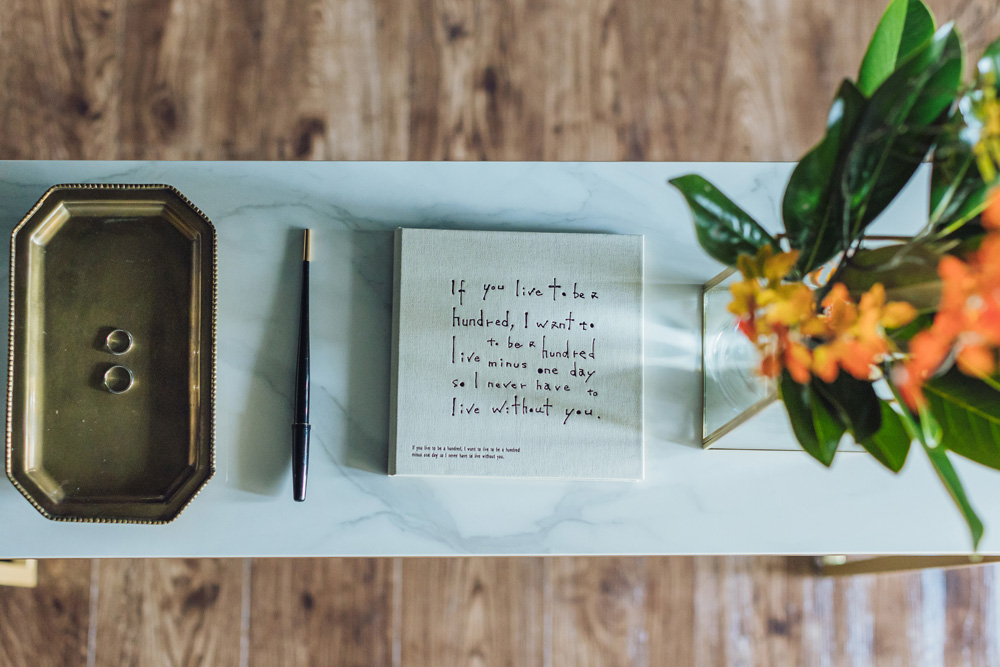 If you live to be a
hundred, I want to
live minus to be a hundred
one day
so I never have to
live without you.
If you live to be a hundred, I want to live to be a hundred
minus and day so I never have to live without you.